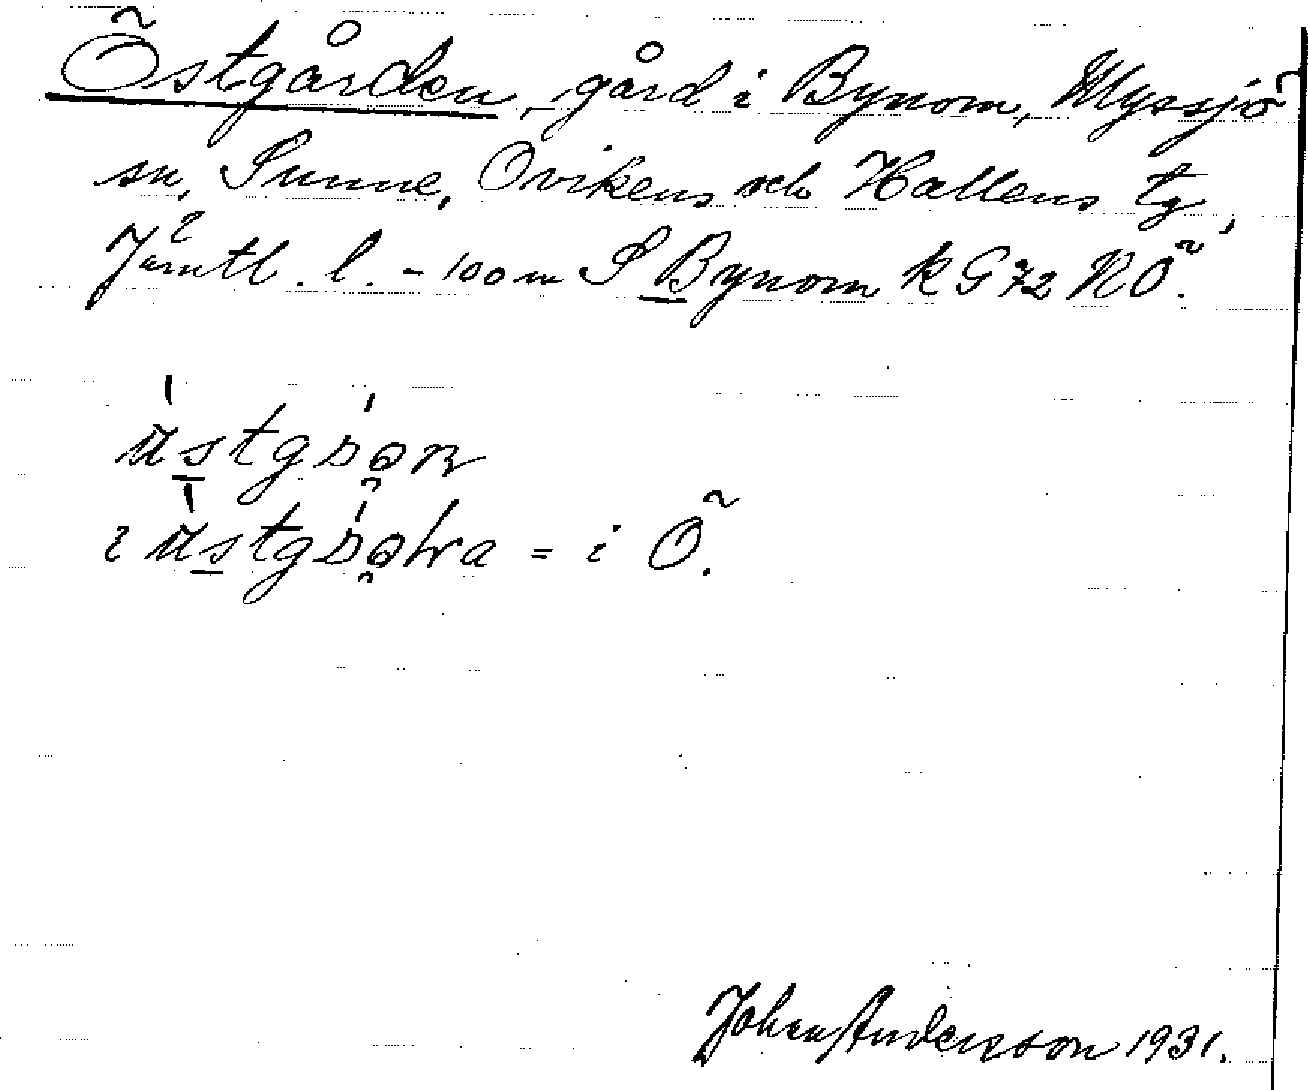 Östgården, gård i Bynom, Myssjö
sn, Sunne, Ovikens och Hallens tg,
Jämtl. l. - 100 m S Bynom k G 72 NÖ.
= i Ö.
Johan Anderson 1931.